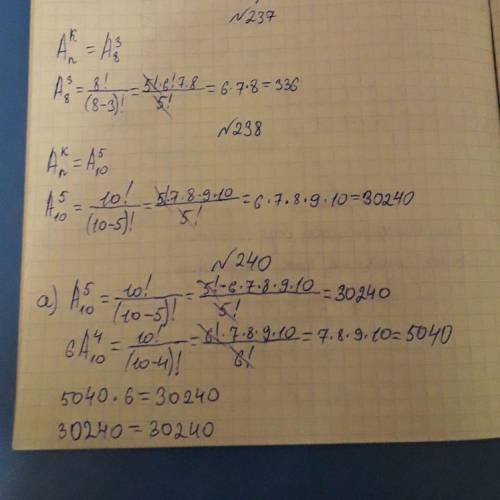 №237
Aₙᵏ = A₈³
A₈³ = 8!/(8-3)! = 5!·6!7·8/5! = 6·7·8 = 336
№238
Aₙᵏ = A₁₀⁵
A₁₀⁵ = 10!/(10-5)! = 5!7·8·9·10/5! = 6·7·8·9·10 = 30240
№240
а) A₁₀⁵ = 10!/(10-5)! = 5!·6·7·8·9·10/5! = 30240
6A₁₀⁴ = 10!/(10-4)! = 6!·7·8·9·10/6! = 7·8·9·10 = 5040
5040·6 = 30240
30240 = 30240